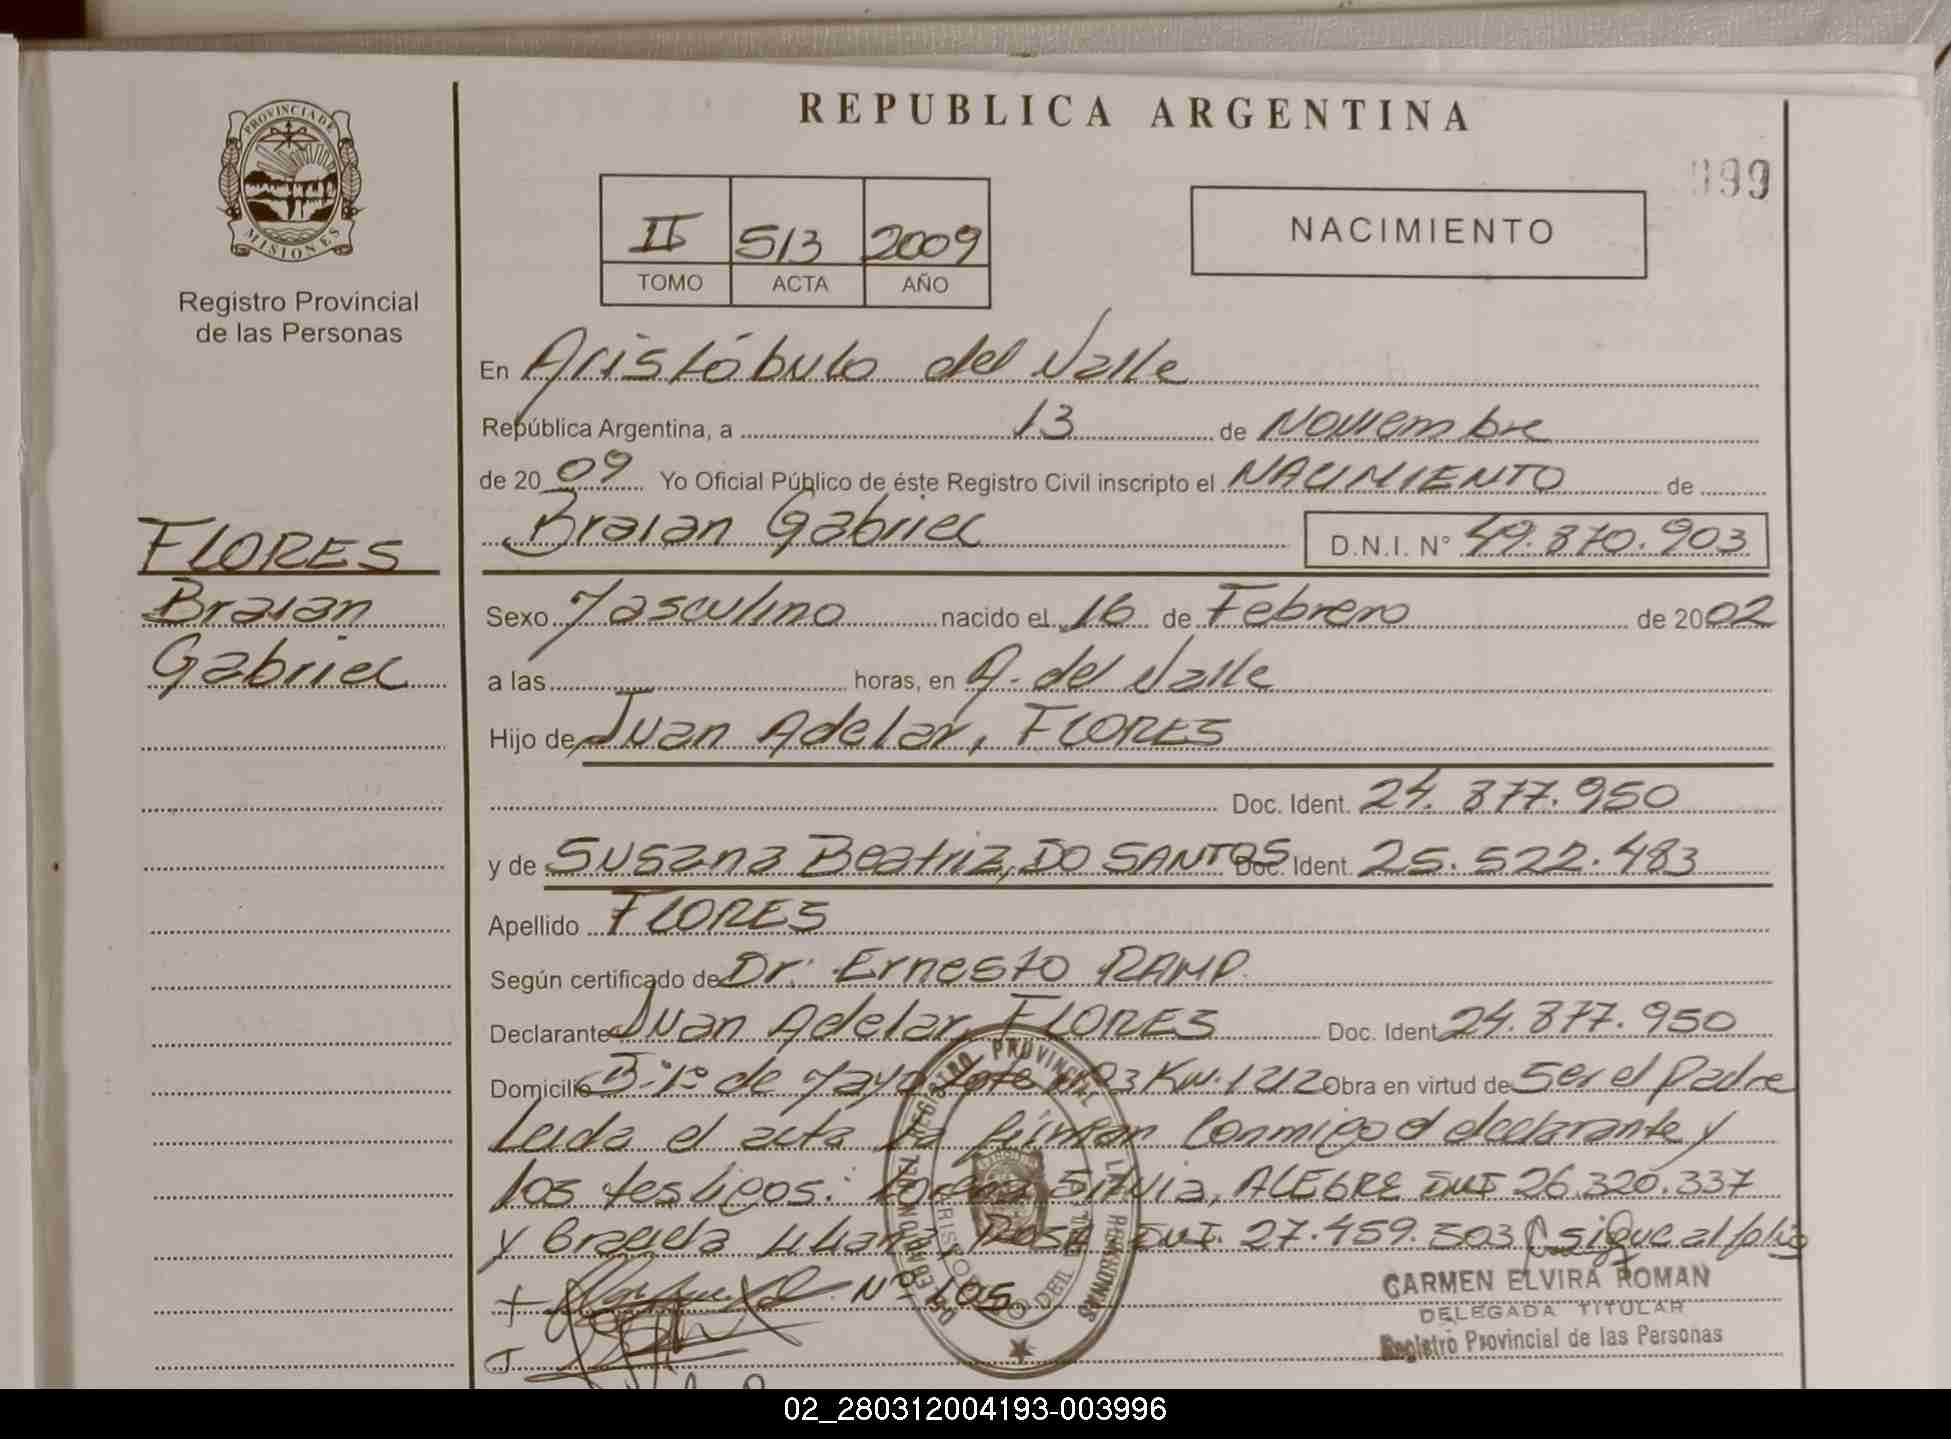 REPUBLICA ARGENTINA
PROVINCIA DE
MISIONES
Registro Provincial
de las Personas
II 513 2009
TOMO ACTA AÑO
NACIMIENTO
199
En Aristóbulo del Valle
República Argentina, a 13 de Noviembre
de 20 09 Yo Oficial Público de éste Registro Civil inscripto el NACIMIENTO de
Braian Gabriel D.N.I. N° 49.870.903
FLORES
Braian
Gabriel
Sexo Masculino nacido el 16 de Febrero de 2002
a las horas, en A. del Valle
Hijo de Juan Adelar, FLORES
Doc. Ident. 24.877.950
y de Susana Beatriz, DO SANTOS Doc. Ident. 25.522.483
Apellido FLORES
Según certificado de Dr. Ernesto RAMP.
Declarante Juan Adelar, FLORES Doc. Ident. 24.877.950
Domicilio B° 1° de Mayo Lote N° 3 Km. 1212 Obra en virtud de Ser el Padre
Leida el acta la firman Conmigo el declarante y
los testigos: Silvia, ALEGRE DNI 26.320.337
y Liliana, ROSA DNI. 27.459.503 sigue al folio
N° 105
REGISTRO PROVINCIAL DE LAS PERSONAS
CARMEN ELVIRA ROMAN
DELEGADA TITULAR
Registro Provincial de las Personas
02_280312004193-003996